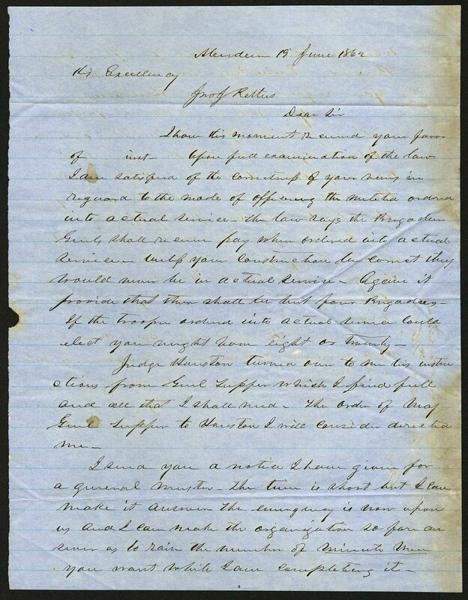 Aberdeen 19 June 1862
His Excellency
Jno J Pettus
Dear Sir
I have this moment received your favor
of inst. Upon full examination of the law
I am satisfied of the correctness of your views in
reguard to the mode of officering the militia ordered
into actual service - the law says the Brigadier
Genls shall receive pay when ordered into actual
service - if your construction be correct they
would never be in actual service - Again it
provide that there shall be but four Brigadiers -
If the troops ordered into actual service could
elect you might have Eight or twenty -
Judge Houston turned over to me his instru
ctions from Genl Tupper which I find full
and all that I shall need - The order of Maj
Genl Tupper to Houston I will consider directed
me -
I send you a notice I have given for
a general muster - the time is short but I can
make it answer the emergency is now upon
us and I can make the organization so far an
swer as to raise the number of Minute Men
you want while I am completing it -